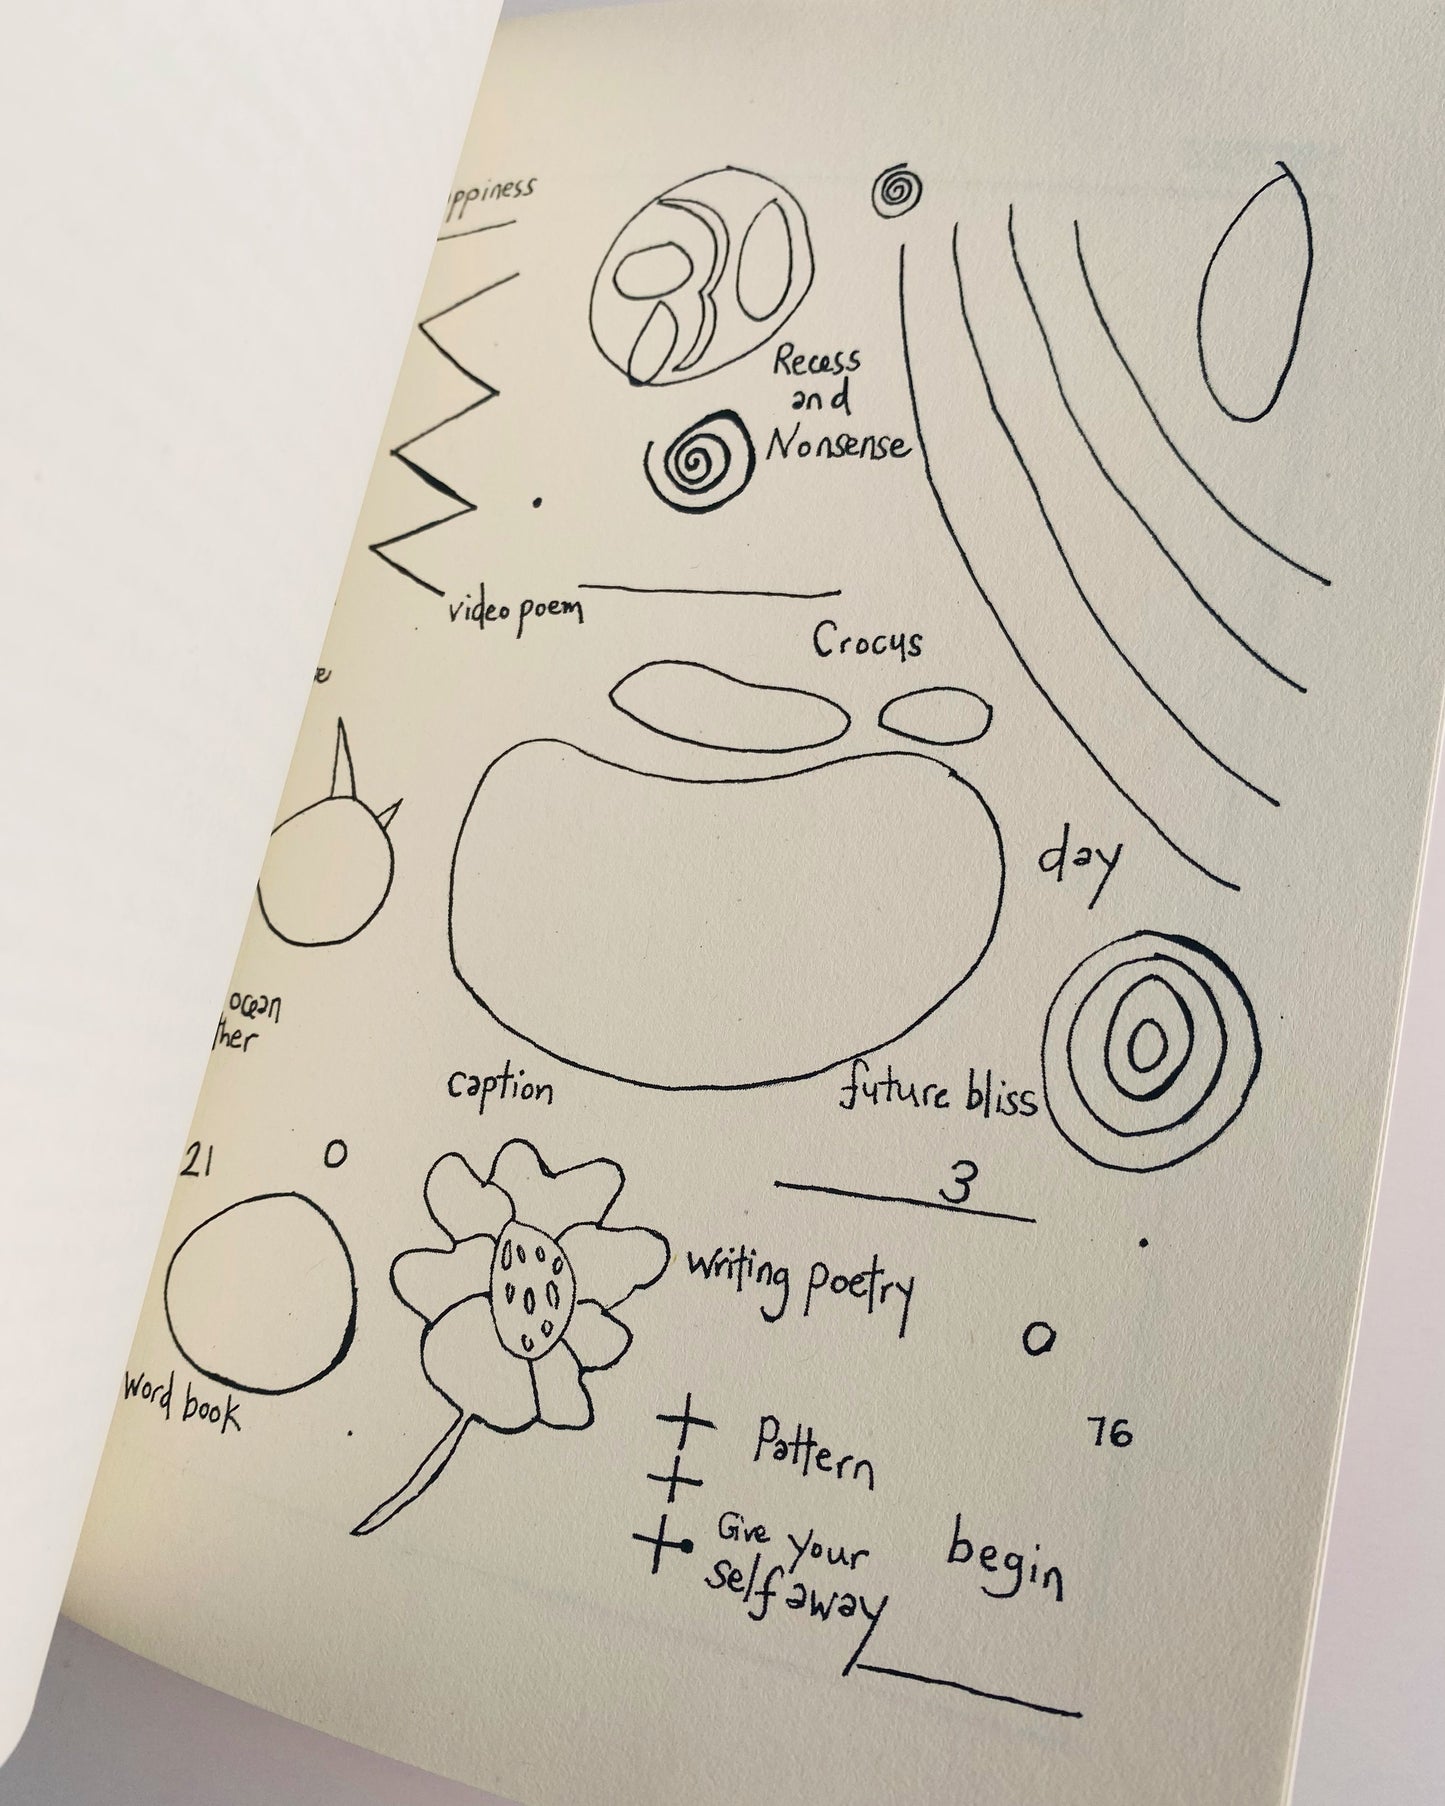 ppiness
Recess
and
Nonsense
video poem
Crocus
day
ocean
ther
caption
future bliss
21
3
writing poetry
word book
Pattern
76
Give your
self away
begin